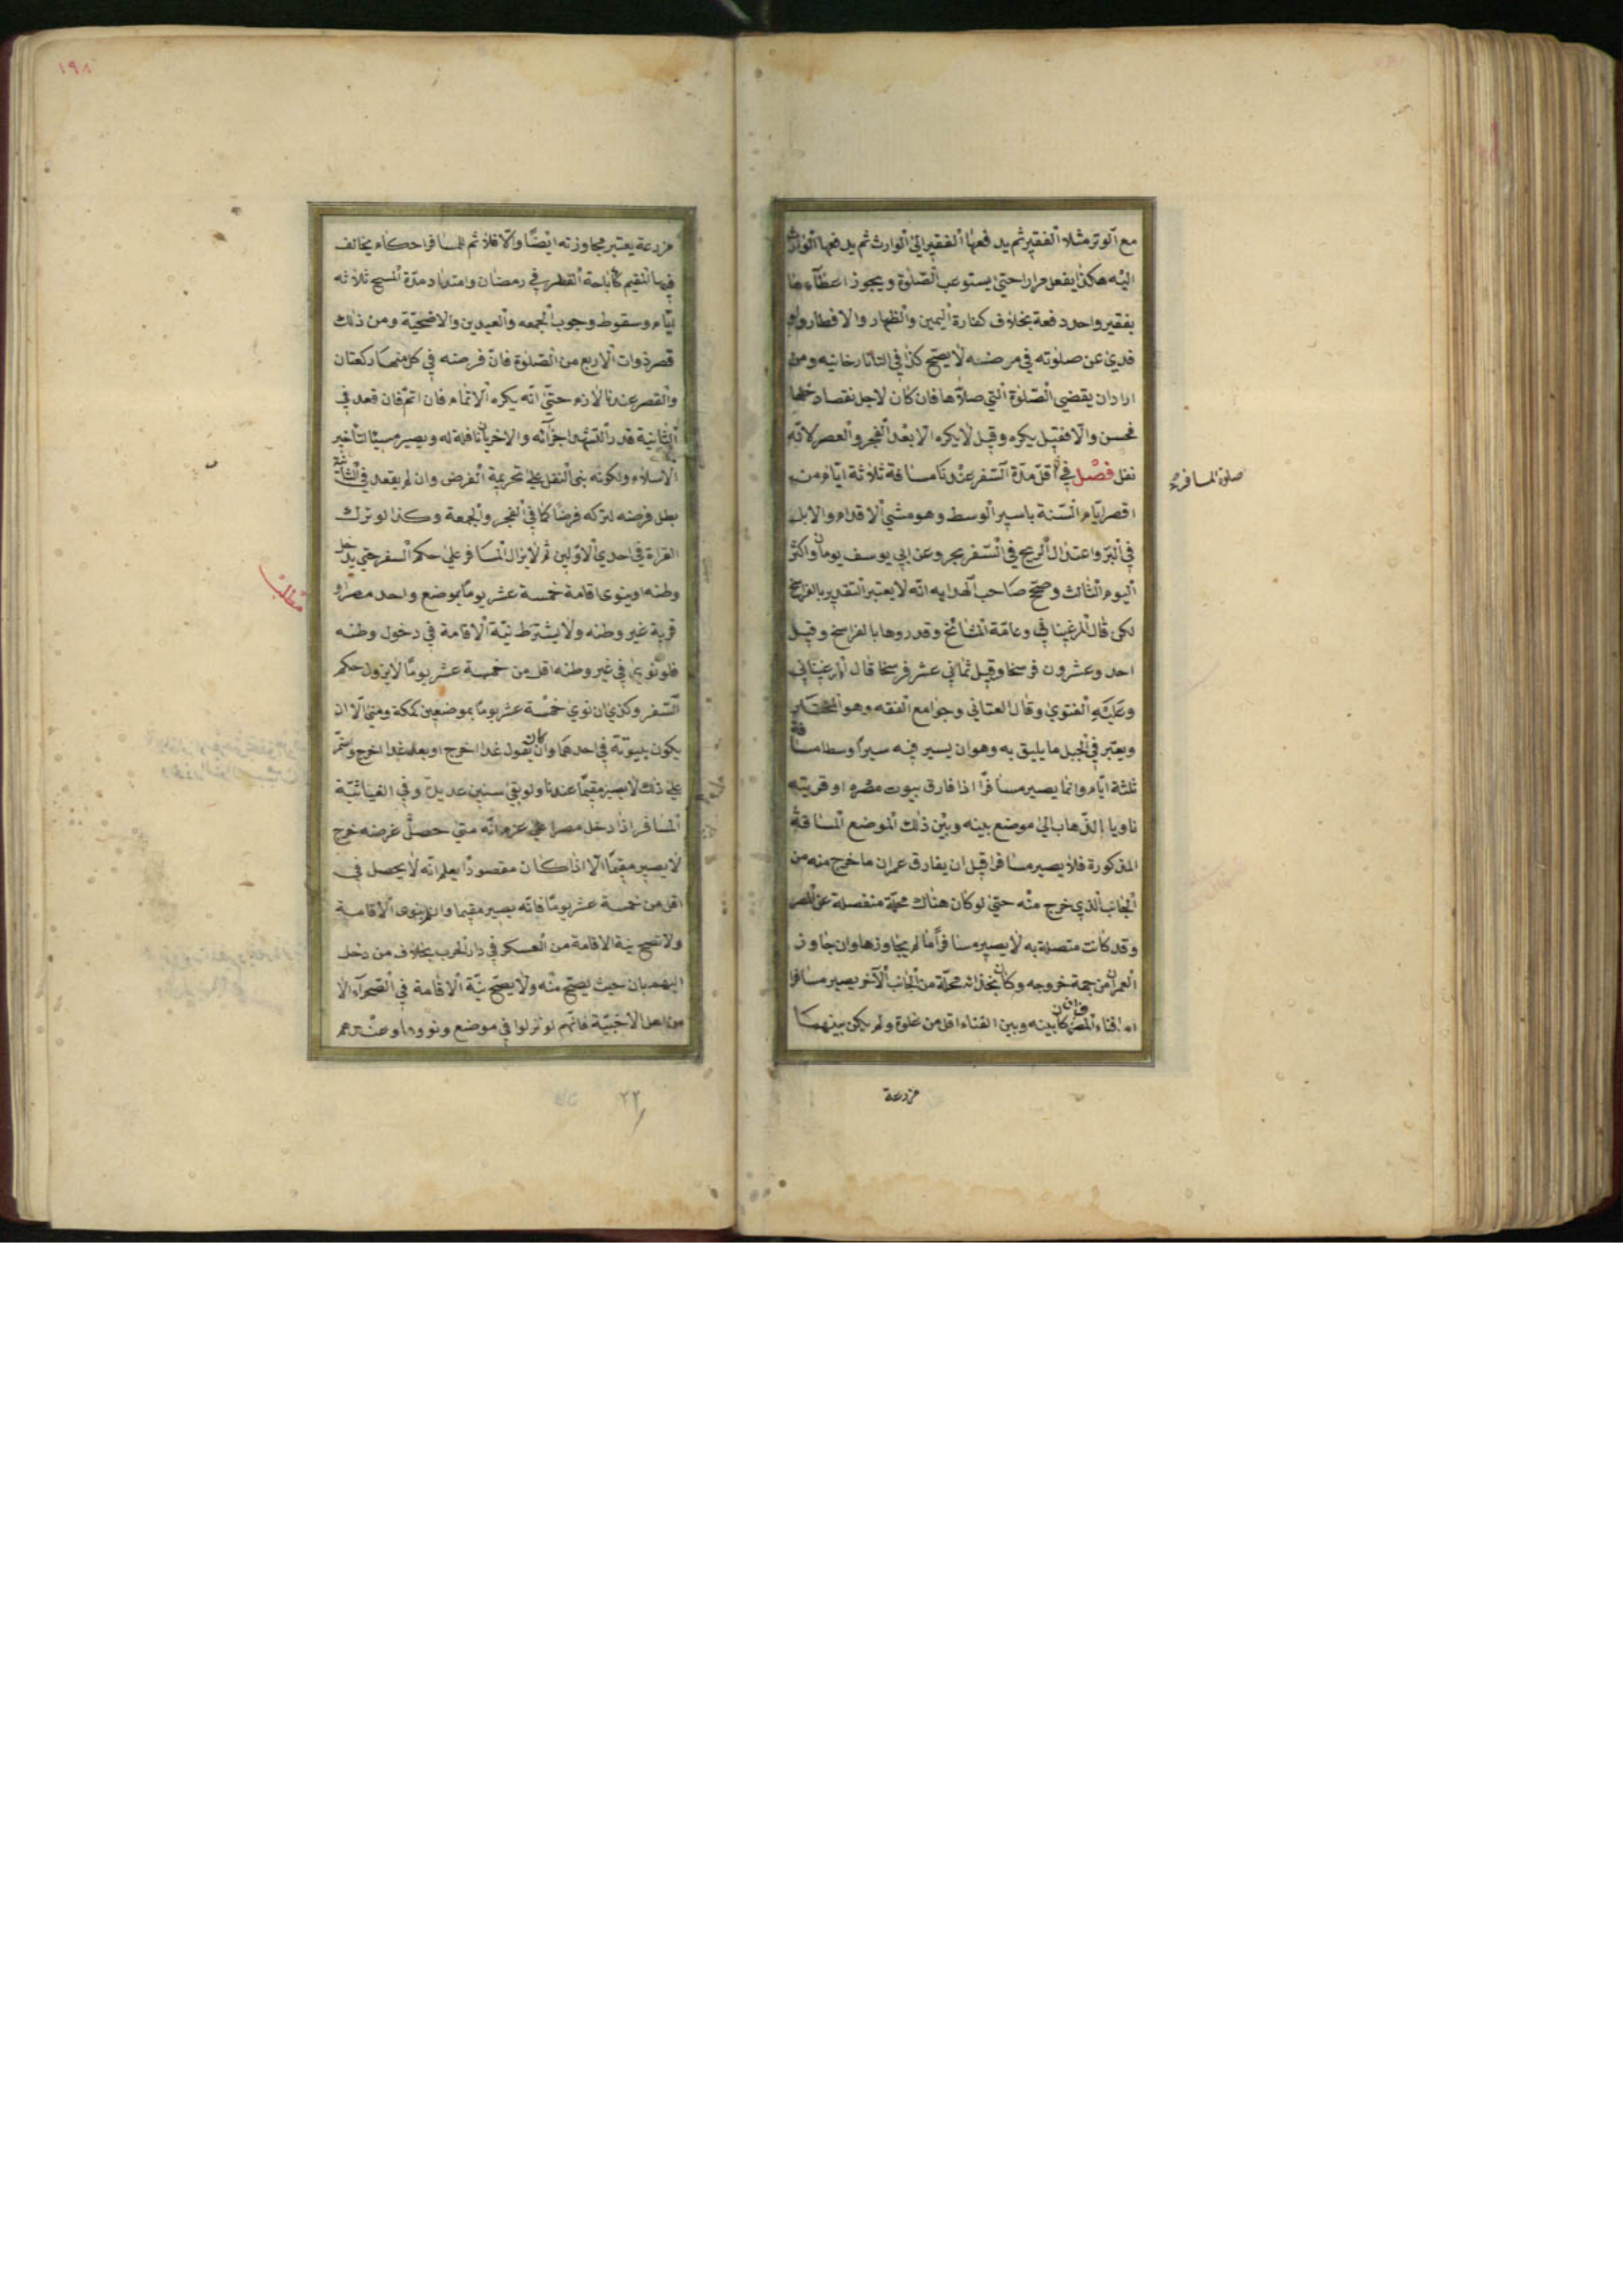 مع الوتر مثلا الفقير ثم يدفعها الفقير الى الوارث ثم يدفعها الوارث
اليه هكذا يفعل مرارا حتى يستوعب الصلوة ويجوز اعطاءها
بفقير واحد دفعة بخلاف كفارة اليمين والظهار والافطار ولو
فدى عن صلوته في مرضه لا يصح كذا في التاتارخانيه ومن
اراد ان يقضي الصلوة التي صلاها فان كان لاجل نقصا دخلها
فحسن والا فقيل يكره وقيل لا يكره الا بعد الفجر والعصر لانه
نفل فصل في اقل مدة السفر عندنا مسافة ثلاثة ايام من
اقصر ايام السنة باسير الوسط وهو مشي الاقدام والابل
في البر واعتدال الريح في السفر بحر وعن ابي يوسف يومان واكثر
اليوم الثالث وصحح صاحب الهدايه انه لا يعتبر التقدير بالفراسخ
لكن قال المرغيناني وعامة المشائخ وقدروها بالفراسخ وقيل
احد وعشرون فرسخا وقيل ثماني عشر فرسخا قال المرغيناني
وعليه الفتوى وقال العتابي وجوامع الفقه وهو المختار
ويعتبر في الجبل ما يليق به وهو ان يسير فيه سيرا وسطا مسافة
ثلثة ايام وانما يصير مسافرا اذا فارق بيوت مصره او قريته
ناويا الذهاب الى موضع بينه وبين ذلك الموضع المسافة
المذكورة فلا يصير مسافرا قبل ان يفارق عمران ما خرج منه من
الجانب الذي خرج منه حتى لو كان هناك محلة منفصلة عن المصر
وقد كانت متصلة به لا يصير مسافرا ما لم يجاوزها وان جاوز
العمران من جهة خروجه وكان بحذائه محلة من الجانب الآخر يصير مسافرا
اما فناء المصر فان كان بينه وبين الفناء اقل من غلوة ولم يكن بينهما
مزرعة
صلوة المسافر
١٩٨
مزرعة يعتبر مجاوزته ايضا والا فلا ثم للمسافر احكام يخالف
فيها المقيم كاباحة الفطر في رمضان وامتداد مدة المسح ثلاثه
ايام وسقوط وجوب الجمعه والعيدين والاضحية ومن ذلك
قصر ذوات الاربع من الصلوة فان فرضه في كل منهما ركعتان
والقصر عندنا لازم حتى انه يكره الاتمام فان اتم فان قعد في
الثانية قدر التشهد اجزأته والاخريان نافلة له ويصير مسيئا لتأخير
الاسلام ولكونه بنى النفل على تحريمة الفرض وان لم يقعد في الثانية
بطل فرضه لتركه فرضا كما في الفجر والجمعة وكذا لو ترك
القراة في احدى الاولين ثم لا يزال المسافر على حكم السفر حتى يدخل
وطنه او ينوى اقامة خمسة عشر يوما بموضع واحد مصر او
قرية غير وطنه ولا يشترط نية الاقامة في دخول وطنه
فلو نوى في غير وطنه اقل من خمسة عشر يوما لا يزول حكم
السفر وكذي ان نوى خمسة عشر يوما بموضعين كمكة ومنى الا ان
يكون بيتوتة في احدهما وان كان يقول غدا اخرج او بعد غدا اخرج واستمر
على ذلك لا يصير مقيما عندنا ولو بقى سنين عديدة وفي الغياثية
المسافر اذا دخل مصرا على عزم انه متى حصل غرضه خرج
لا يصير مقيما الا اذا كان مقصودا يعلم انه لا يحصل في
اقل من خمسة عشر يوما فانه يصير مقيما وان لم ينوى الاقامة
ولا تصح نية الاقامة من العسكر في دار الحرب بخلاف من دخل
اليهم بان حيث يصح منه ولا يصح نية الاقامة في الصحراء الا
من اهل الاخبية فانهم لو نزلوا في موضع ونووها وعندهم
مطلب
٢٢